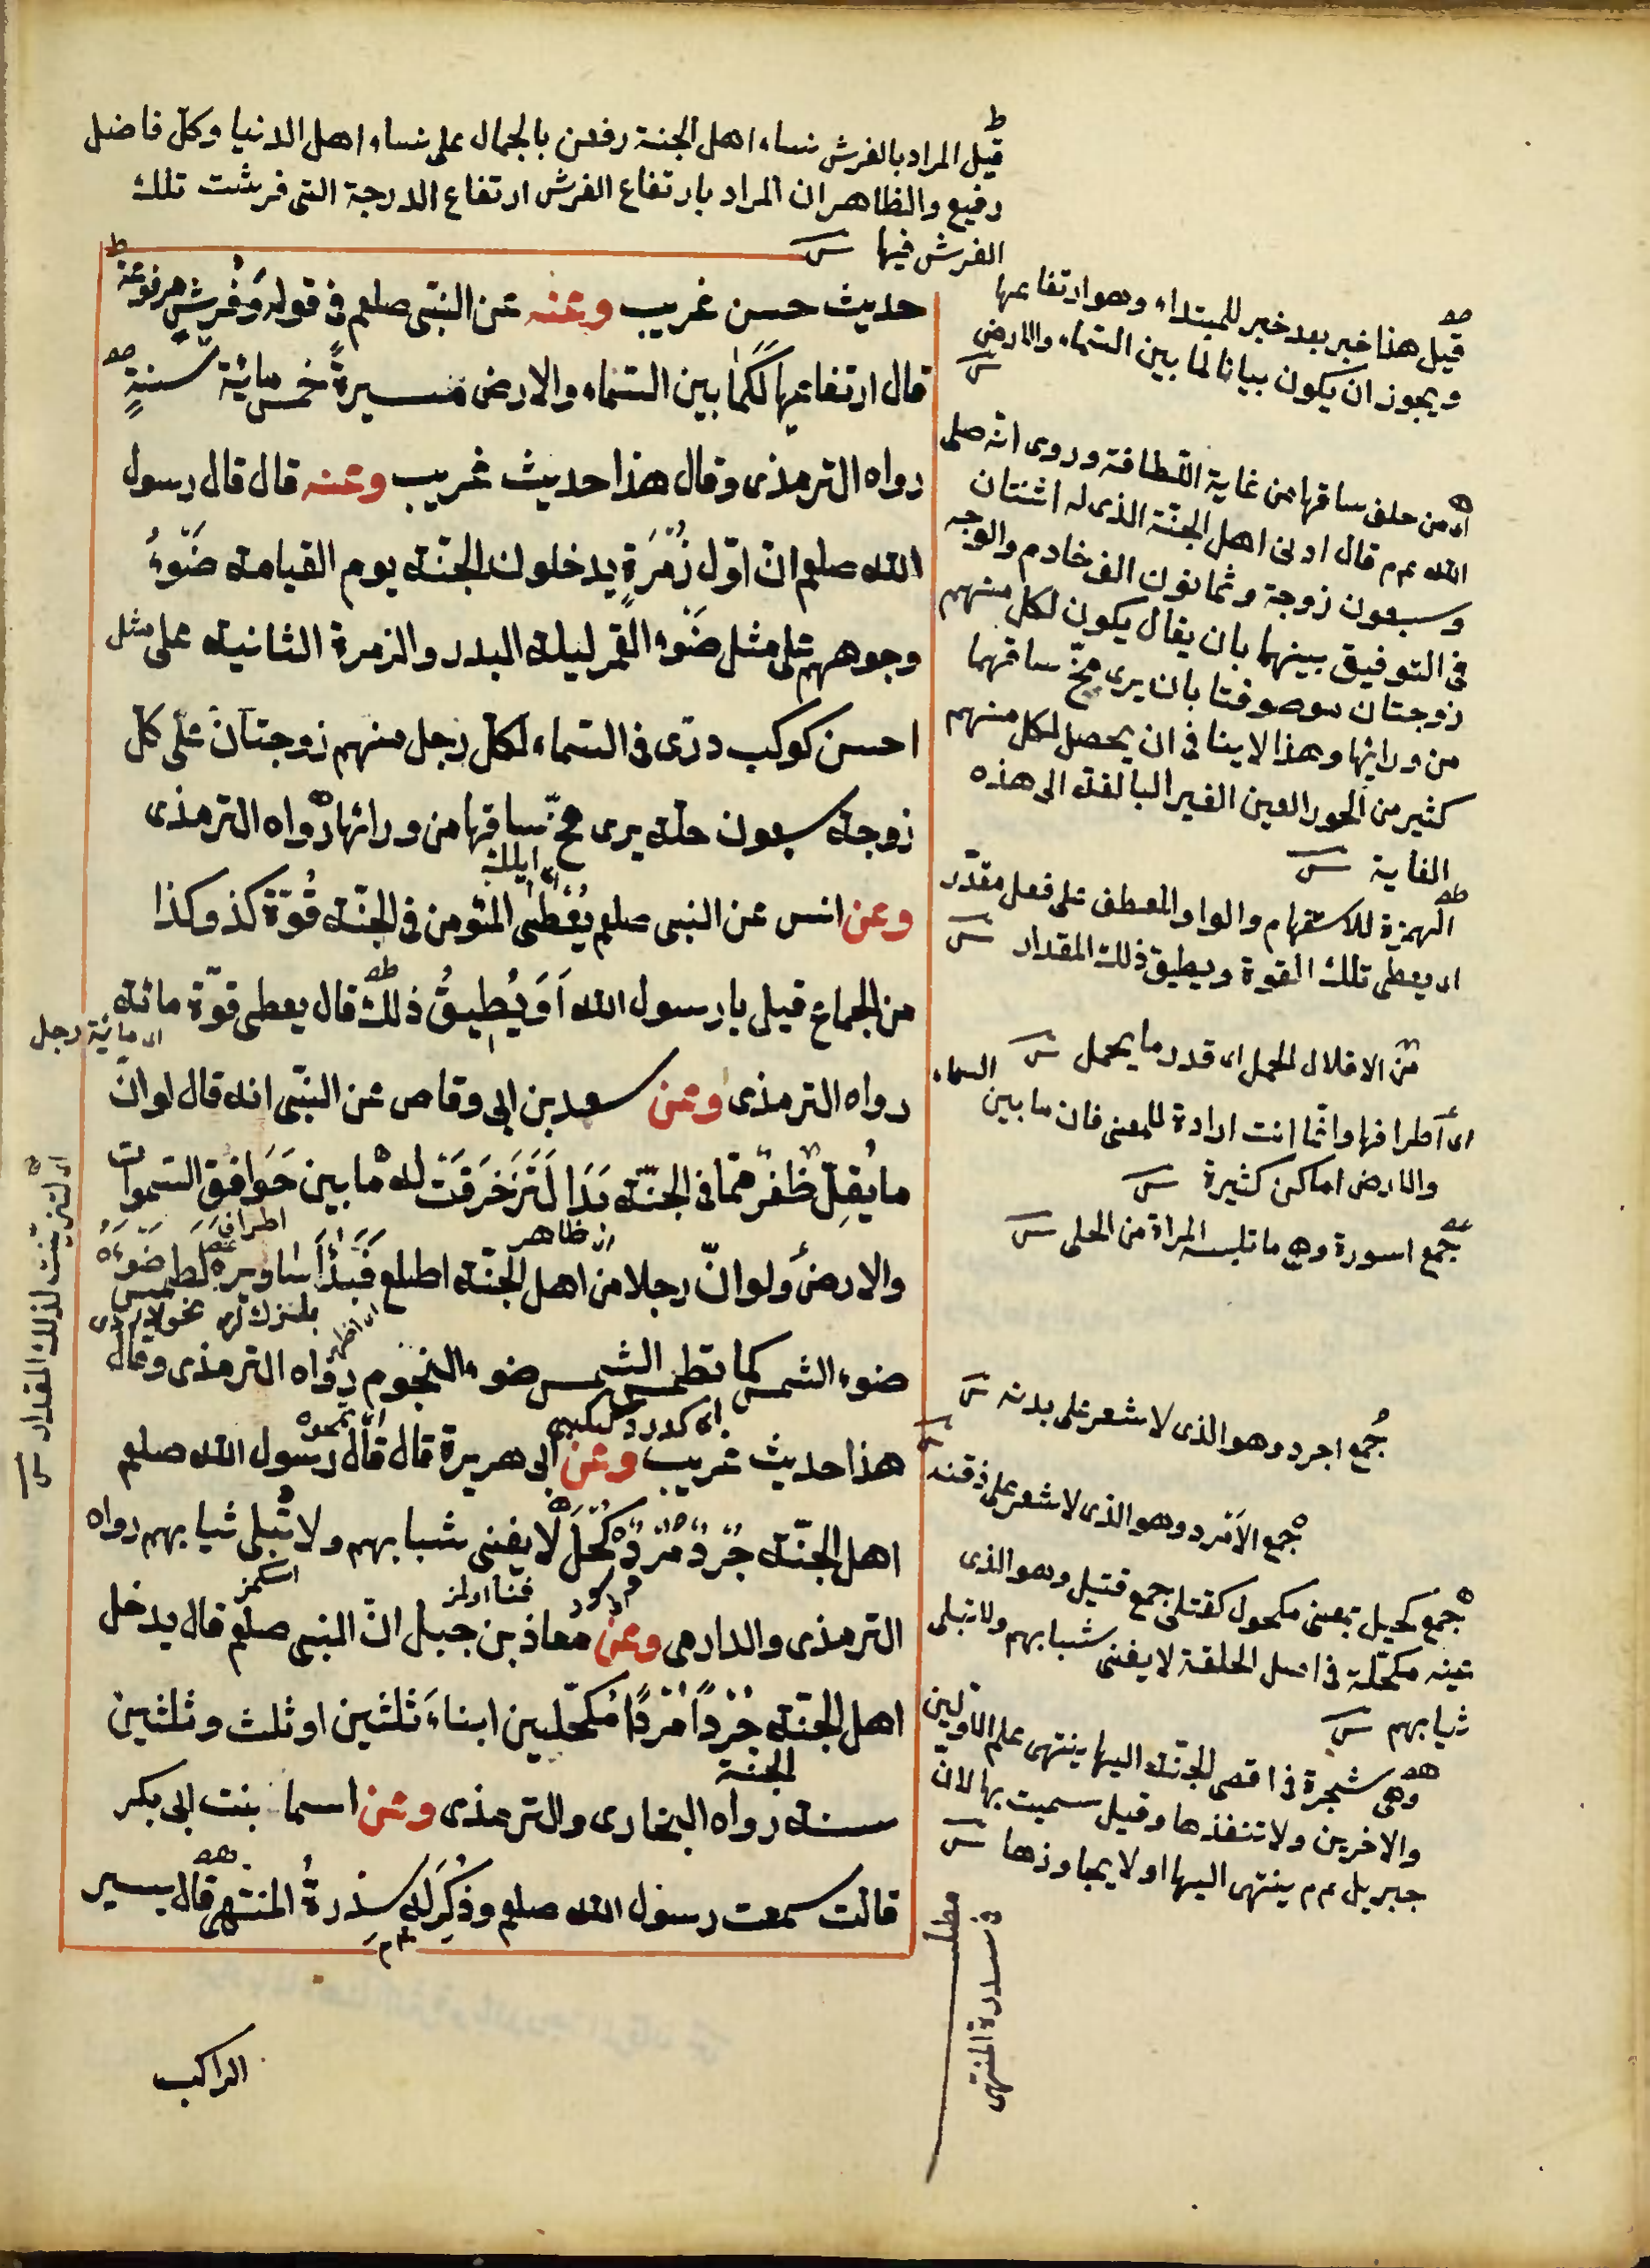 قيل المراد بالفرش نساء اهل الجنة رفعن بالجمال على نساء اهل الدنيا وكل فاضل
رفيع والظاهر ان المراد بارتفاع الفرش ارتفاع الدرجة التى فرشت تلك
الفرش فيها
حديث حسن غريب وعنه عن النبى صلعم فى قوله وَفُرُشٍ مرفوعة
قال ارتفاعها لَكَمَا بين السماء والارض مسيرةُ خمس مائة سنةٍ
رواه الترمذى وقال هذا حديث غريب وعنه قال قال رسول
الله صلعم انّ اوّل زُمْرَةٍ يدخلون الجنّة يوم القيامة ضَوْءُ
وجوههم على مثل ضَوْءِ القمر ليلة البدر والزمرة الثانية على مثل
احسن كوكب درّى فى السماء لكل رجل منهم زوجتان على كل
زوجة سبعون حلة يرى مخّ ساقها من ورائها رواه الترمذى
وعن انس عن النبى صلعم يُعْطَى المؤمن فى الجنّة قُوّةَ كذا وكذا
من الجماع قيل يا رسول الله اَوَيُطِيقُ ذلك قال يعطى قوّة مائة
اى مائة رجل
رواه الترمذى وعن سعد بن ابى وقاص عن النبّى انه قال لو انّ
ما يُقِلّ ظُفُرٌ ممّا فى الجنّة بَدَا لَتَزَخْرَفَتْ له ما بين خَوَافِقِ السموات
اطراف
ظاهر
والارض ولو انّ رجلا من اهل الجنّة اطلع فَبَدَا اَسَاوِرُهُ لطمس ضَوْءُهُ
ضوء الشمس كما تطمس الشمس ضوء النجوم رواه الترمذى وقال
هذا حديث غريب وعن ابى هريرة قال قال رسول الله صلعم
اهل الجنّة جُرْدٌ مُرْدٌ كُحْلٌ لا يفنى شبابهم ولا تُبلى ثيابهم رواه
الترمذى والدارمى وعن معاذ بن جبل انّ النبى صلعم قال يدخل
اهل الجنّة جُرْدًا مُرْدًا مُكَحَّلين ابناءَ ثلثين او ثلث وثلثين
الجنة
سنة رواه البخارى والترمذى وعن اسما بنت ابى بكر
قالت سمعت رسول الله صلعم وذُكِرَ له سِدْرَةُ المنتهى قال يسير
الراكب
قيل هذا خبر بعد خبر للمبتداء وهو ارتفاعها
ويجوز ان يكون بيانا لما بين السماء والارض
اى من خلف ساقها من غاية اللّطافة وروى انه صلى
الله عم قال ادنى اهل الجنّة الذى له اثنتان
وسبعون زوجة وثمانون الف خادم والوجه
فى التوفيق بينهما بان يقال يكون لكل منهم
زوجتان موصوفتا بان يرى مخّ ساقهما
من ورائها وهذا لا ينافى ان يحصل لكل منهم
كثير من الحور العين الغير البالغة الى هذه
الغاية
الهمزة للاستفهام والواو العطف على فعل مقدّر
اى يعطى تلك القوة ويطيق ذلك المقدار
من الاقلال الحمل اى قدر ما يحمل
اى اطرافها وانما انث ارادة للمعنى فان ما بين السماء
والارض اماكن كثيرة
جمع اسورة وهى ما تلبسه المراة من الحلى
جُمع اجرد وهو الذى لا شعر على بدنه
جمع الاَمْرد وهو الذى لا شعر على ذقنه
جمع كحيل بمعنى مكحول كقتلى جمع قتيل وهو الذى
عينه مكحّلة فى اصل الخلقة لا يفنى شبابهم ولا تبلى
ثيابهم
وهى شجرة فى اقصى الجنّة اليها ينتهى علم الاوّلين
والاخرين ولا تنفذها وقيل سميت بها لانّ
جبريل عم ينتهى اليها او لا يجاوزها
مطلب
فى سدرة المنتهى
اى لتزيّنت لذلك المقدار